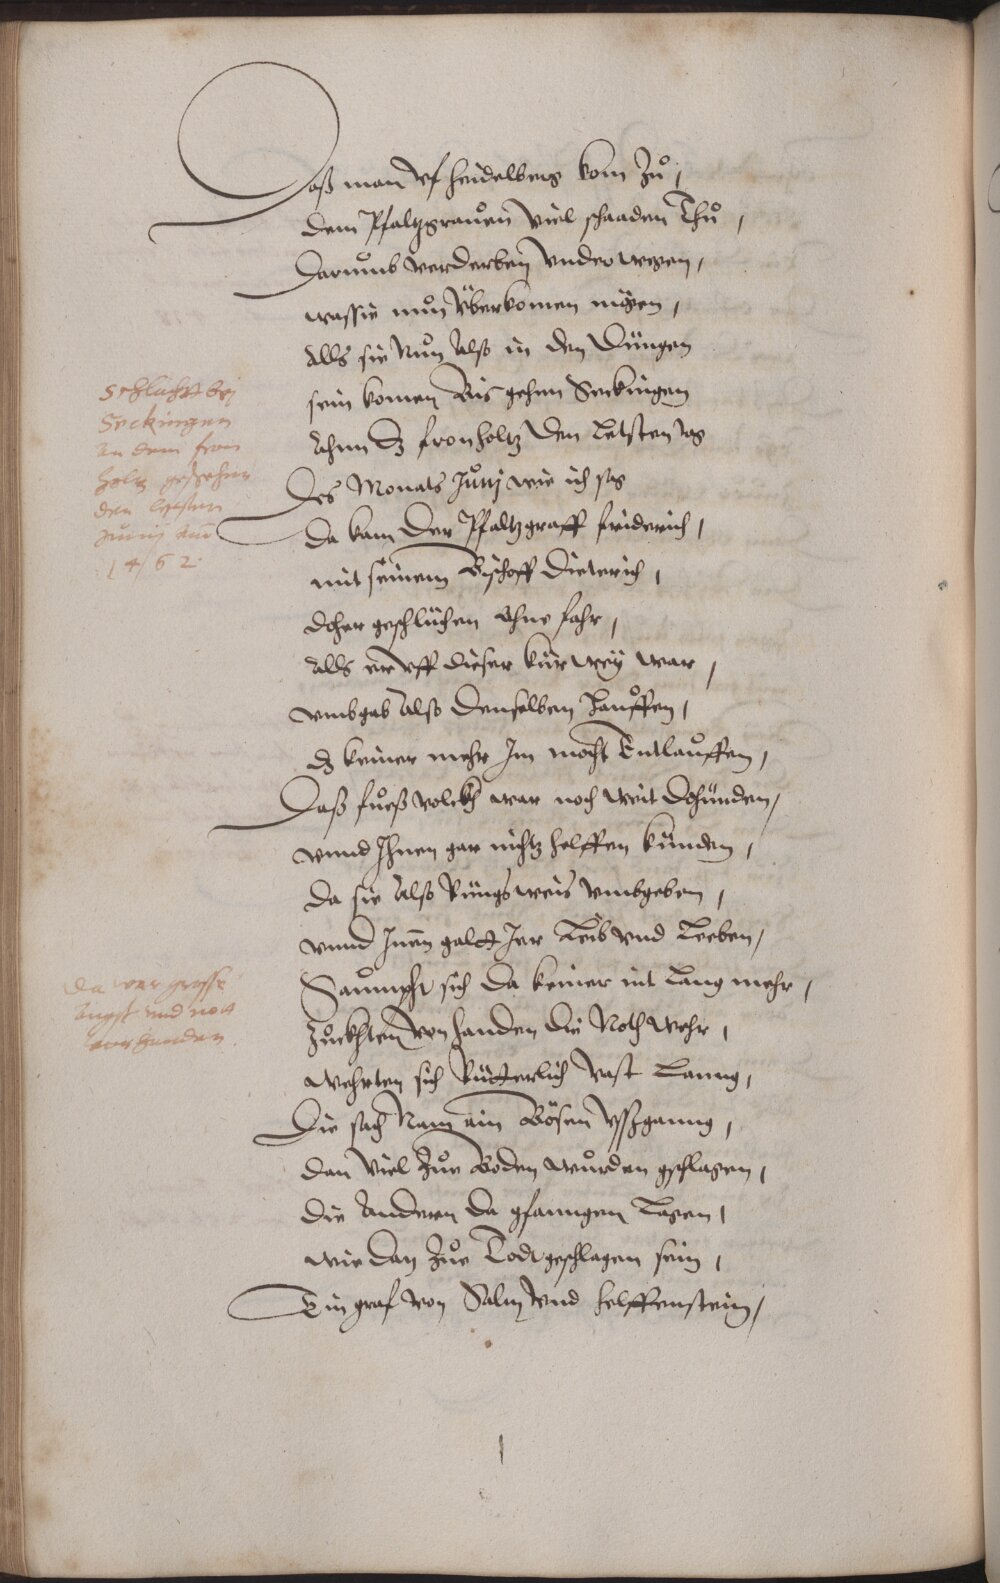 Daß man vf Heidelberg kom Zů,
dem Pfaltzgrauen viel schaaden Thů,
Darumb verderben vnderwegen,
was sie nun überkomen mögen,
Alls sie Nun Also in den Düngen
sein komen Bis gehen Seckingen
Ahnn dz fronholtz den Letsten tag
Des Monats Junij wie ich sag
Da kam der Pfaltzgraff friderich,
mit seinem Bischoff Dieterich,
doher geschlichen ohne fahr,
Alls er vff dieser kürwey war,
vmbgab Also denselben Hauffen,
dz keiner mehr Im mocht Entlauffen,
Daß fueß volckh war noch weit dohünden,
vnnd Ihnen gar nichtz helffen künden,
da sie Also Rüngs weis vmbgeben,
vnnd Inen galtt Ier Leib vnd Leeben,
Saumpt sich da keiner nit Lang mehr,
Zuckhten von handen die Nothwehr,
wehrten sich Rütterlich vast Lanng,
Die sach Nam ain Bösen vßganng,
dan viel Zue Boden wurden gschlagen,
die Anderen da gfanngen Lagen,
wie dan Zue Todt geschlagen sein,
Ein graf von Salm vnd helffenstein,
Schlacht bej
Seckingen
an dem fron
holtz geschehen
den letsten
Junij
1462
da war grosse
angst und not
vorhanden